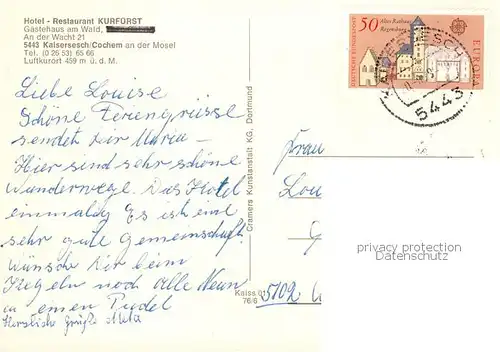 Hotel - Restaurant KURFÜRST
Gästehaus am Wald,
An der Wacht 21
5443 Kaisersesch/Cochem an der Mosel
Tel. (0 26 53) 65 66
Luftkurort 459 m ü. d. M.
Liebe Louise
Schöne Feriengrüsse
sendet dir Maria –
Hier sind sehr schöne
Wanderwege. Das Hotel
einmalig Es ist eine
sehr gute Gemeinschaft
Wünsch dir beim
Kegeln noch alle Neun
u einen Pudel
Herzliche Grüße Meta
Cramers Kunstanstalt KG, Dortmund
Kaiss 01
76/6
50
Altes Rathaus
Regensburg
DEUTSCHE BUNDESPOST
EUROPA
5443
Frau
Lou
5102
privacy protection
Datenschutz